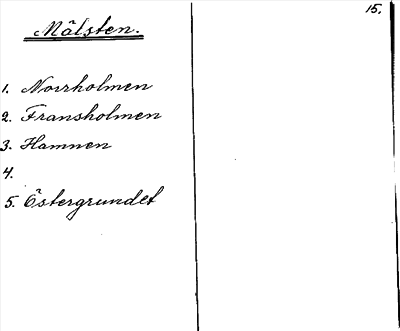 Målsten.
15.
1. Norrholmen
2. Fransholmen
3. Hamnen
4.
5. Östergrundet